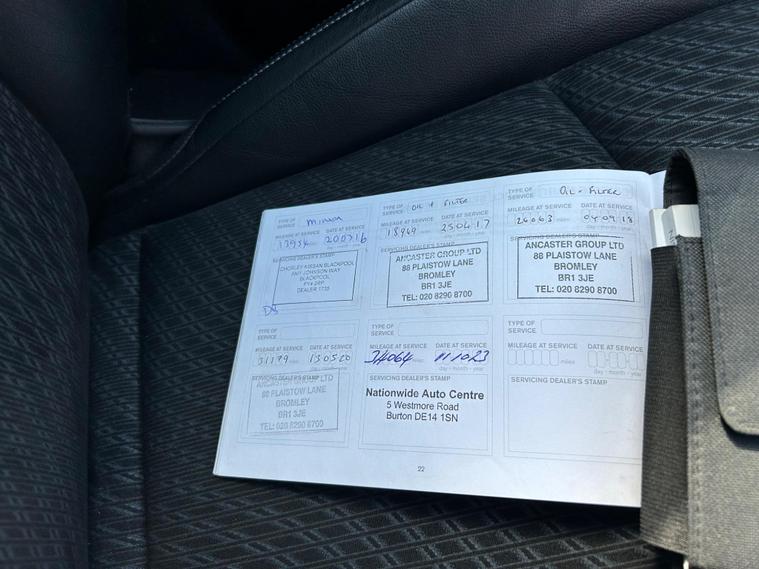 TYPE OF SERVICE Minor
MILEAGE AT SERVICE DATE AT SERVICE
miles 200716
day - month - year
SERVICING DEALER'S STAMP
CHORLEY NISSAN BLACKPOOL
JOHNSON WAY
BLACKPOOL
TYPE OF SERVICE OIL + FILTER
MILEAGE AT SERVICE DATE AT SERVICE
18969 miles 250417
day - month - year
SERVICING DEALER'S STAMP
ANCASTER GROUP LTD
88 PLAISTOW LANE
BROMLEY
BR1 3JE
TEL: 020 8290 8700
TYPE OF SERVICE OIL - FILTER
MILEAGE AT SERVICE DATE AT SERVICE
26063 miles 040918
day - month - year
SERVICING DEALER'S STAMP
ANCASTER GROUP LTD
88 PLAISTOW LANE
BROMLEY
BR1 3JE
TEL: 020 8290 8700
TYPE OF SERVICE
MILEAGE AT SERVICE DATE AT SERVICE
31179 miles 130520
day - month - year
SERVICING DEALER'S STAMP
ANCASTER GROUP LTD
88 PLAISTOW LANE
BROMLEY
BR1 3JE
TEL: 020 8290 8700
TYPE OF SERVICE
MILEAGE AT SERVICE DATE AT SERVICE
34064 miles 111023
day - month - year
SERVICING DEALER'S STAMP
Nationwide Auto Centre
5 Westmore Road
Burton DE14 1SN
TYPE OF SERVICE
MILEAGE AT SERVICE DATE AT SERVICE
miles
day - month - year
SERVICING DEALER'S STAMP
22